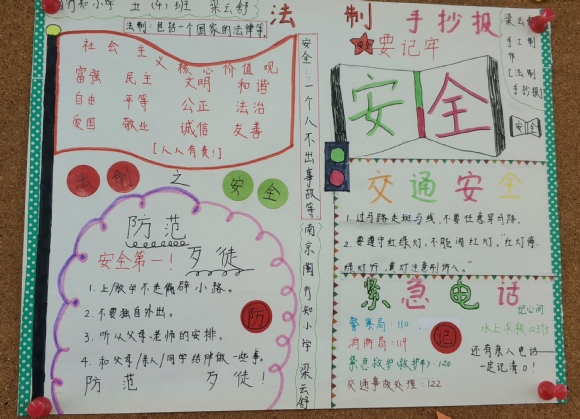 五(4)班 梁云舒
法制 手抄报
法制:包括一个国家的法律等
社会主义核心价值观
富强 民主 文明 和谐
自由 平等 公正 法治
爱国 敬业 诚信 友善
[人人有责!]
法制之安全
防范
歹徒
安全第一!
1.上放学不走偏僻小路。
2.不要独自外出。
3.听从父母、老师的安排。
4.和父母/亲人/同学结伴做一些事。
防范 歹徒!
防
安全:一个人不出事故等
南京闻有知小学 梁云舒
安全 要记牢
安全
梁云舒
手工制作
[法制手抄报]
安全
交通安全
1.过马路走斑马线,不要任意穿马路。
2.要遵守红绿灯,不能闯红灯。"红灯停,
绿灯行,黄灯注意到行人。"
紧急电话
记心间
警察局:110
消防局:119
紧急救护(救护车):120
交通事故处理:122
记
水上求救:12395
还有亲人电话
一定记清楚!